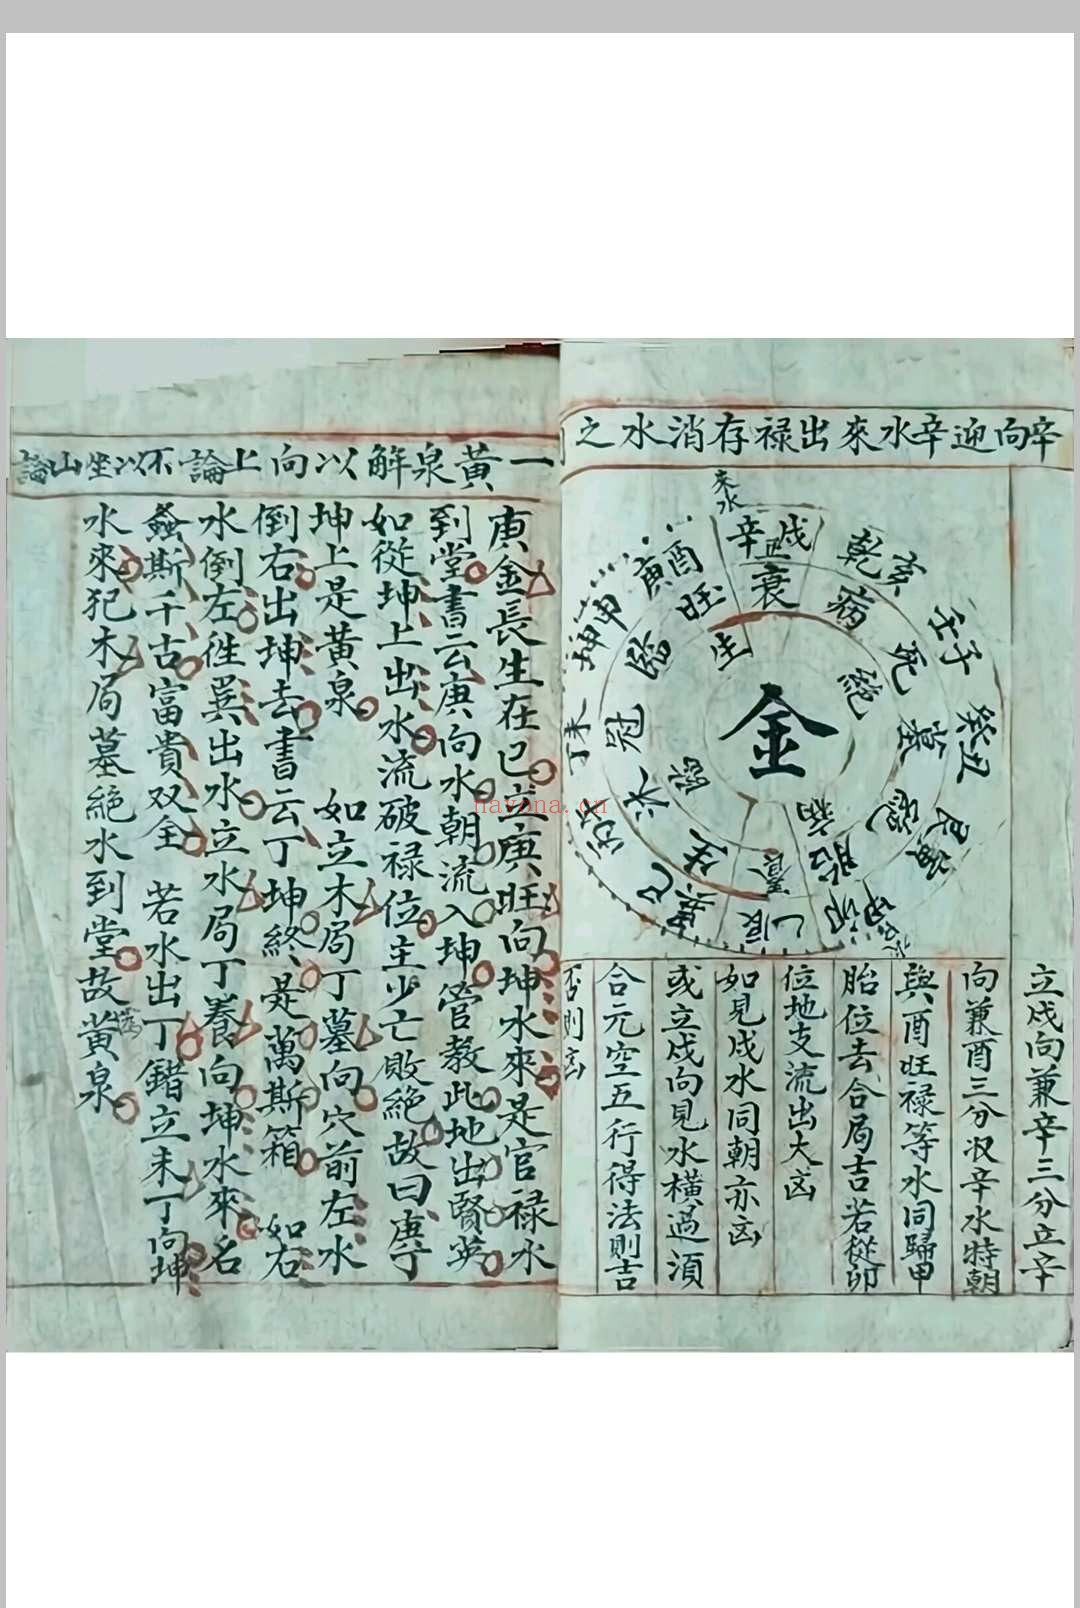 辛向迎辛水來出禄存消水之
來水
辛戌
乾亥
壬子
癸丑
艮寅
甲卯
乙辰
巽巳
丙午
丁未
坤申
庚酉
衰
病
死
墓
絕
胎
養
生
沐
冠
臨
旺
生
絕
金
立戌向兼辛三分立辛
向兼酉三分収辛水特朝
與酉旺禄等水同歸甲
胎位去合局吉若從卯
位地支流出大凶
如見戌水同朝亦凶
或立戌向見水橫過須
合元空五行得法則吉
否則凶
一黃泉解以向上論不以坐山論
庚金長生在巳立庚旺向坤水來是官禄水
到堂書云庚向水朝流入坤管教此地出賢英
如從坤上出水流破禄位主少亡敗絕故曰庚丁
坤上是黃泉 如立木局丁墓向穴前左水
倒右出坤去書云丁坤終是萬斯箱 如右
水倒左徃巽出水立水局丁養向坤水來名
螽斯千古富貴双全 若水出丁錯立未丁向坤
水來犯木局墓絕水到堂故為黃泉
nayona.cn